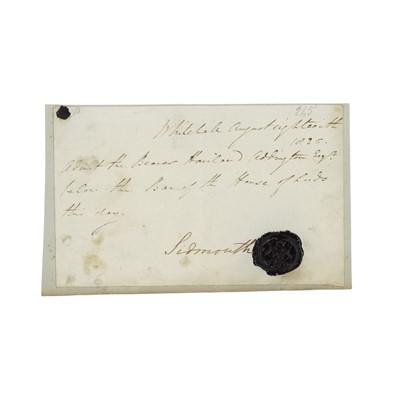 245
Whitehall August eighteenth
1820.
Admit the Bearer Haviland Addington Esqr.
below the Bar of the House of Lords
this day.
Sidmouth